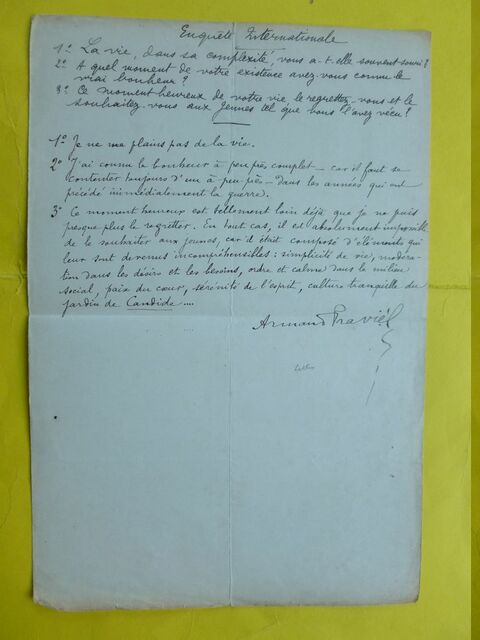 Enquête Internationale
1º La vie, dans sa complexité, vous a-t-elle souvent souri?
2º A quel moment de votre existence avez-vous connu le
vrai bonheur?
3º Ce moment heureux de votre vie, le regrettez-vous et le
souhaitez-vous aux jeunes tel que vous l'avez vécu?
1º Je ne me plains pas de la vie.
2º J'ai connu le bonheur à peu près complet - car il faut se
contenter toujours d'un à-peu-près - dans les années qui ont
précédé immédiatement la guerre.
3º Ce moment heureux est tellement loin déjà que je ne puis
presque plus le regretter. En tout cas, il est absolument impossible
de le souhaiter aux jeunes, car il était composé d'éléments qui
leur sont devenus incompréhensibles : simplicité de vie, modéra-
tion dans les désirs et les besoins, ordre et calme dans le milieu
social, paix du cœur, sérénité de l'esprit, culture tranquille du
jardin de Candide....
Armand Praviel